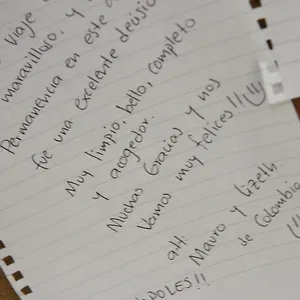 Viaje
maravilloso, y
Permanencia en este
fue una excelente decisio
Muy limpio, bello, completo
y acogedor.
Muchas Gracias y nos
Vamos muy felices!!!
att:
Mauro y Lizeth.
de Colombia
POLES!!